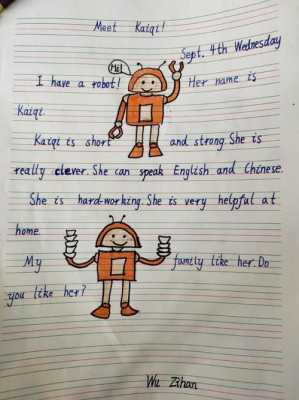 Meet Kaiqi!
Sept. 4th Wednesday
Hi!
I have a robot! Her name is
Kaiqi.
Kaiqi is short and strong. She is
really clever. She can speak English and Chinese.
She is hard-working. She is very helpful at
home.
My family like her. Do
you like her?
Wu Zihan